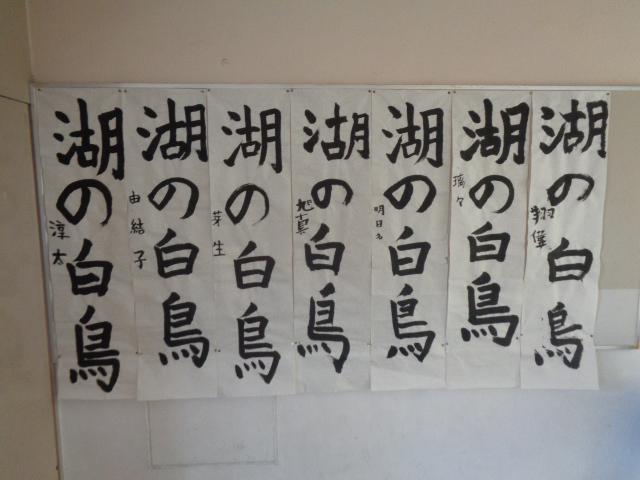 湖の白鳥
翔偉
湖の白鳥
璃々
湖の白鳥
湖の白鳥
旭真
湖の白鳥
芽生
湖の白鳥
由結子
湖の白鳥
淳太